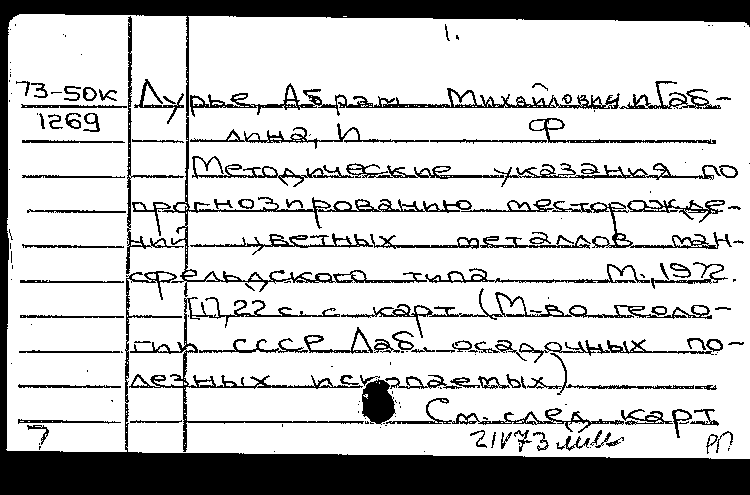 1.
73-50К Лурье, Абрам Михайлович и Габ-
1269
лина, И Ф
Методические указания по
прогнозированию месторожде-
ний цветных металлов ман-
сфельдского типа. М., 1972.
[1], 22 с. с карт. (М-во геоло-
гии СССР Лаб. осадочных по-
лезных ископаемых)
См. след. карт
7 21 V 73 РП